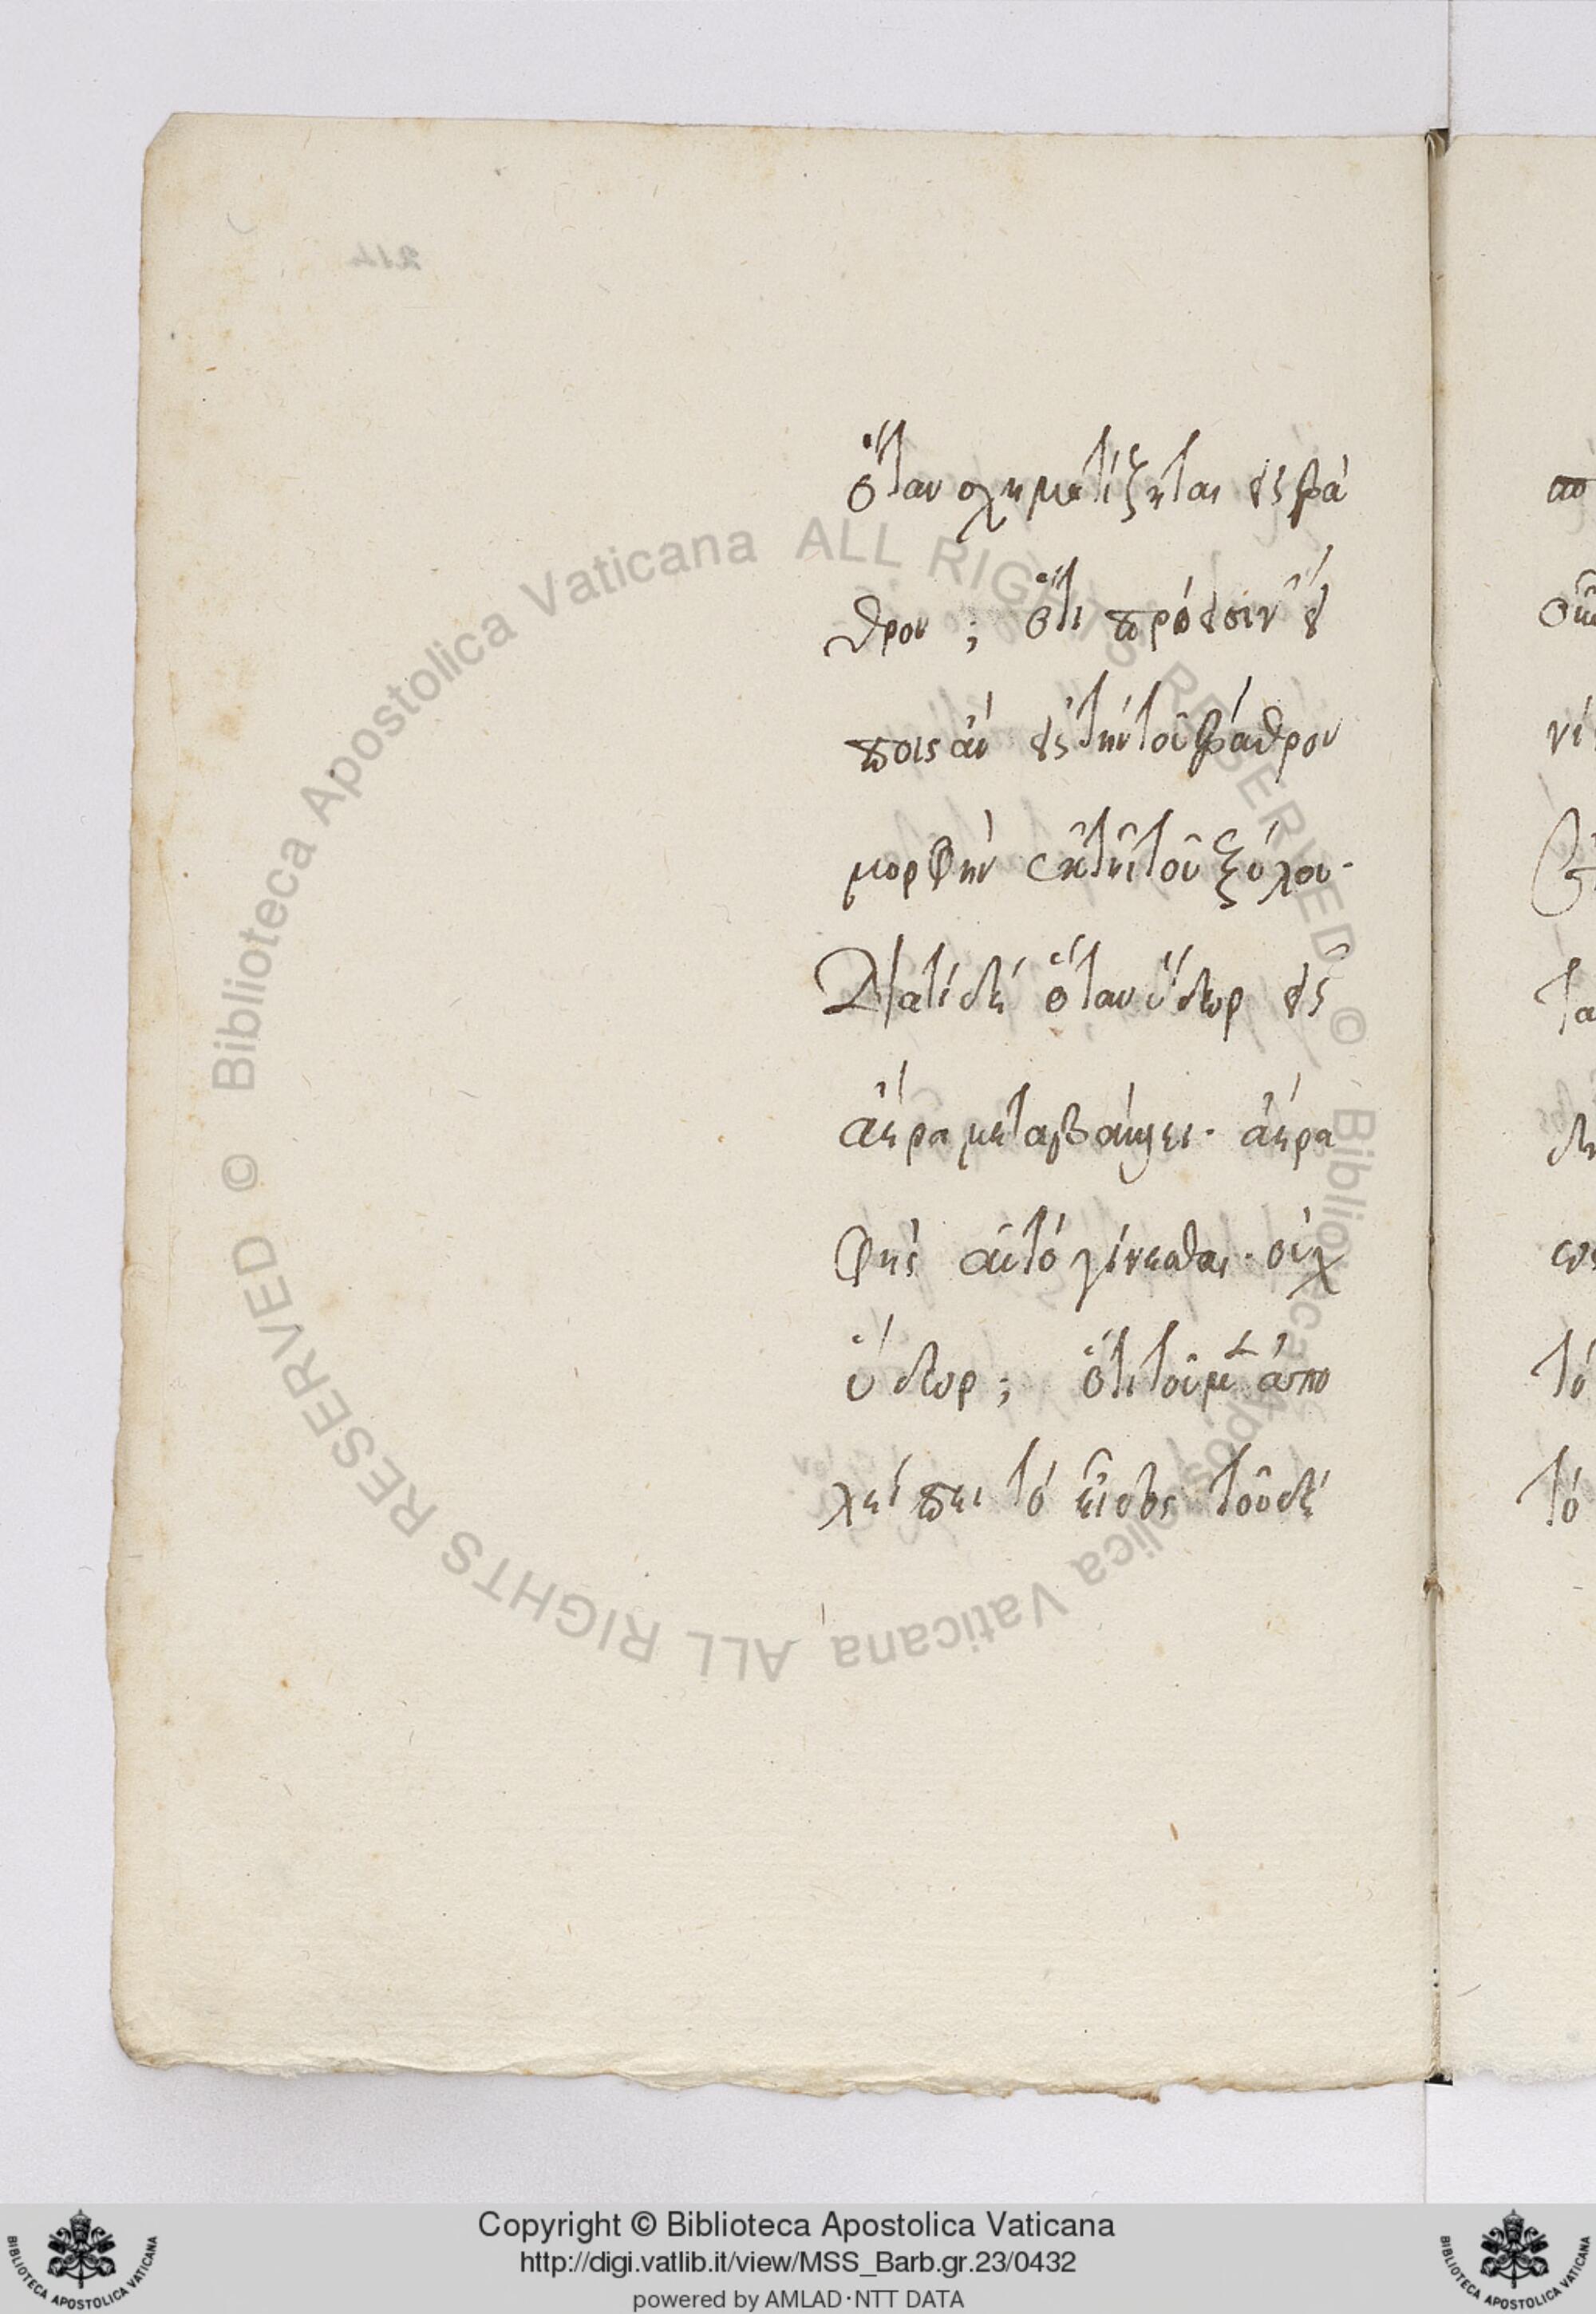 ὅταν σχηματίζηται εἰς βά
θρον; ὅτι πρόεισιν εἴ
ποις ἂν εἰς τὴν τοῦ βάθρου
μορφὴν ἐκ τῆς τοῦ ξύλου·
Διατί δὲ ὅταν ὕδωρ εἰς
ἀέρα μεταβαίνει· ἀέρα
φῂς αὐτὸ γίνεσθαι· οὐχ
ὕδωρ; ὅτι τοῦ μὲν ἀπο
λείπει τὸ εἶδος τοῦ δὲ
Biblioteca Apostolica Vaticana ALL RIGHTS RESERVED ©
Biblioteca Apostolica Vaticana ALL RIGHTS RESERVED ©
Copyright © Biblioteca Apostolica Vaticana
http://digi.vatlib.it/view/MSS_Barb.gr.23/0432
powered by AMLAD·NTT DATA
BIBLIOTECA APOSTOLICA VATICANA
BIBLIOTECA APOSTOLICA VATICANA